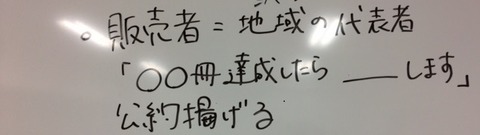 。販売者＝地域の代表者
「〇〇冊達成したら ___ します」
公約掲げる